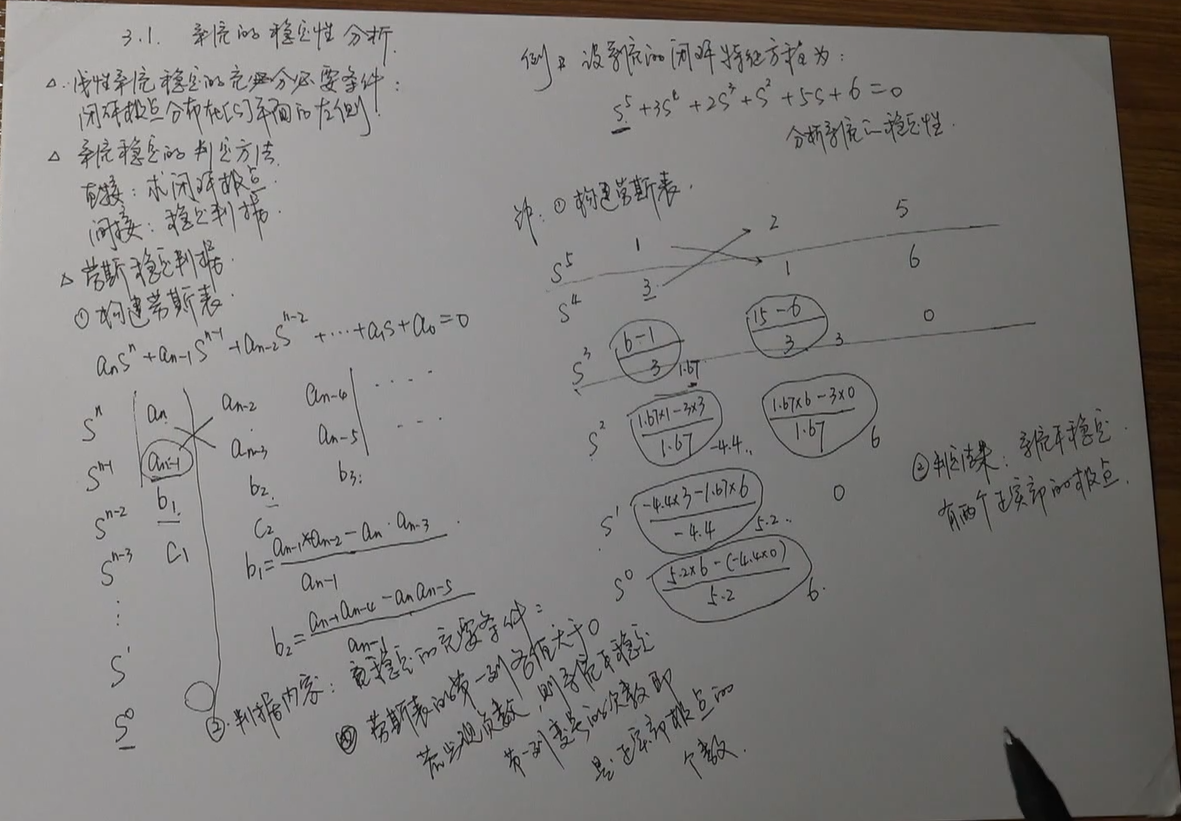 3.1. 系统的稳定性分析.
△ 线性系统稳定的充分必要条件:
闭环极点分布在[S]平面的左侧.
△ 系统稳定的判定方法.
直接: 求闭环极点.
间接: 稳定判据.
△ 劳斯稳定判据.
① 构建劳斯表.
aₙSⁿ + aₙ₋₁Sⁿ⁻¹ + aₙ₋₂Sⁿ⁻² + ⋯ + a₁S + a₀ = 0
Sⁿ aₙ aₙ₋₂ aₙ₋₄ ....
Sⁿ⁻¹ aₙ₋₁ aₙ₋₃ aₙ₋₅ ...
Sⁿ⁻² b₁ b₂ b₃
Sⁿ⁻³ C₁ C₂
⋮
S¹
S⁰
b₁ = (aₙ₋₁×aₙ₋₂ − aₙ·aₙ₋₃) / aₙ₋₁
b₂ = (aₙ₋₁aₙ₋₄ − aₙaₙ₋₅) / aₙ₋₁
② 判据内容: 稳定的充要条件:
劳斯表的第一列各值大于0
若出现负数, 则系统不稳定
第一列变号的次数即
是正实部极点的
个数.
例: 设系统的闭环特征方程为:
S⁵ + 3S⁴ + 2S³ + S² + 5S + 6 = 0
分析系统的稳定性.
解: ① 构建劳斯表.
S⁵ 1 2 5
S⁴ 3 1 6
S³ (6−1)/3 1.67 (15−6)/3 3 0
S² (1.67×1−3×3)/1.67 −4.4.. (1.67×6−3×0)/1.67 6
S¹ (−4.4×3−1.67×6)/−4.4 5.2.. 0
S⁰ (5.2×6−(−4.4×0))/5.2 6.
② 判定结果: 系统不稳定.
有两个正实部的极点.